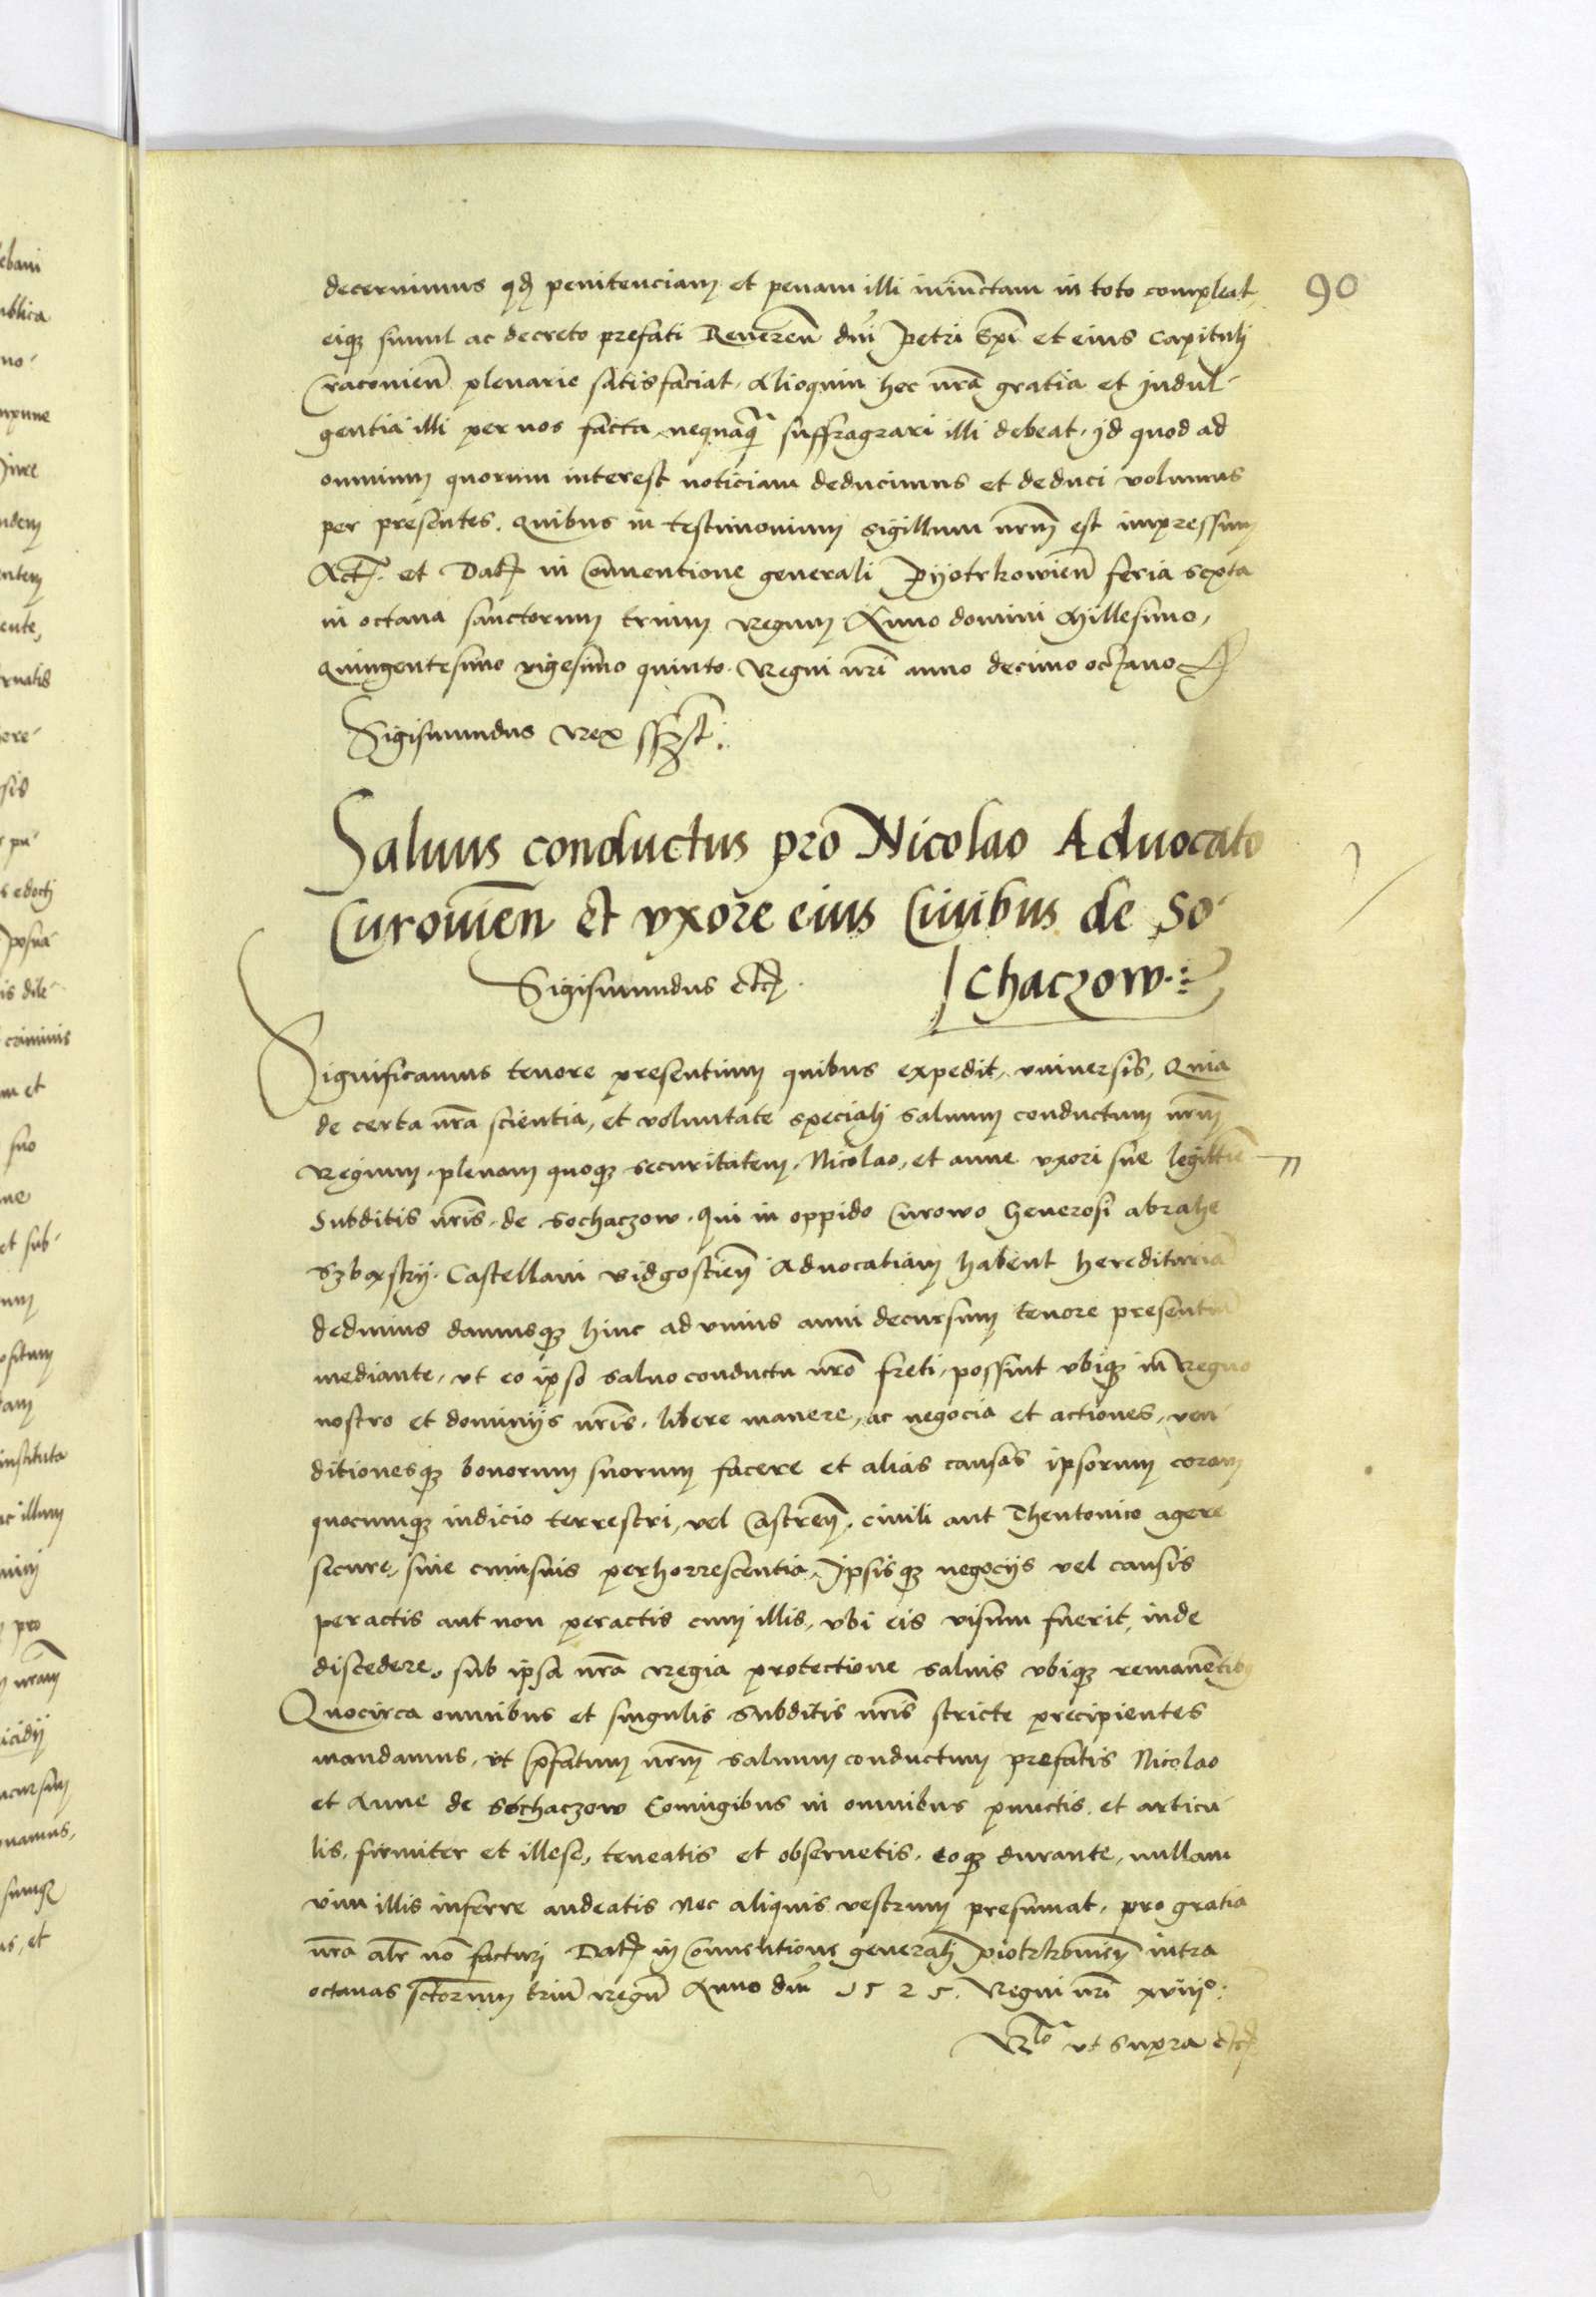 90
decernimus qđ penitenciam et penam illi iniunctam in toto compleat
eiqꝫ simul ac decreto prefati Reueren̄ dn̄i Petri Ep̄i et eius Capituli
Cracouien̄ plenarie satisfaciat, Alioquin hec nr̄a gratia et Indul-
gentia illi per nos facta, nequaq̄ suffragrari illi debeat, Id quod ad
omnium quorum interest noticiam deducimus et deduci volumus
per presentes. Quibus in testimonium sigillum nr̄m est impressum
Act. et Dat. in Conuentione generali Pyotrkowien̄ feria sexta
in octaua sanctorum trium regum Anno domini Millesimo,
Quingentesimo vigesimo quinto. Regni nr̄i anno decimo octauo
Sigismundus Rex sszt.
Saluus conductus pro Nicolao Aduocato
Curouien̄ et vxore eius Ciuibus de So-
Chaczow.
Sigismundus etc.
Significamus tenore presentium quibus expedit, vniuersis, Quia
de certa nr̄a scientia, et voluntate speciali saluum conductum nr̄m
Regium, plenam quoqꝫ securitatem, Nicolao, et anne vxori sue legittīe
Subditis nr̄is de Sochaczow, Qui in oppido Curowo Generosi abrahe
Castellani vidgostien̄ Aduocatiam habent hereditariā
dedimus damusqꝫ hinc ad vnius anni decursum tenore presentiū
mediante, vt eo ipso saluo conductu nr̄o freti, possint vbiqꝫ in Regno
nostro et dominijs nr̄is, libere manere, ac negocia et actiones, ven-
ditionesqꝫ bonorum suorum facere et alias causas ipsorum coram
quocumqꝫ iudicio terrestri, vel Castren̄, ciuili aut Theutonico agere
secure, sine cuiusuis perhorrescentia, Ipsisqꝫ negocijs vel causis
peractis aut non peractis cum illis, vbi eis visum fuerit, inde
discedere, sub ipsa nr̄a Regia protectione saluis vbiqꝫ remanētibꝫ
Quocirca omnibus et singulis subditis nr̄is stricte precipientes
mandamus, vt p̄fatum nr̄m saluum conductum prefatis Nicolao
et Anne de Sochaczow Coniugibus in omnibus punctis et articu-
lis, firmiter et illese, teneatis et obseruetis, eoqꝫ durante, nullam
vim illis inferre audeatis nec aliquis vestrum presumat, pro gratia
nr̄a alr̄ nō facturi Dat. in Conuentione generali Piotrkouien̄ intra
octauas sctorum triū regū Anno dn̄i 1525. Regni nr̄i xviijº.
Rlo vt supra etc.